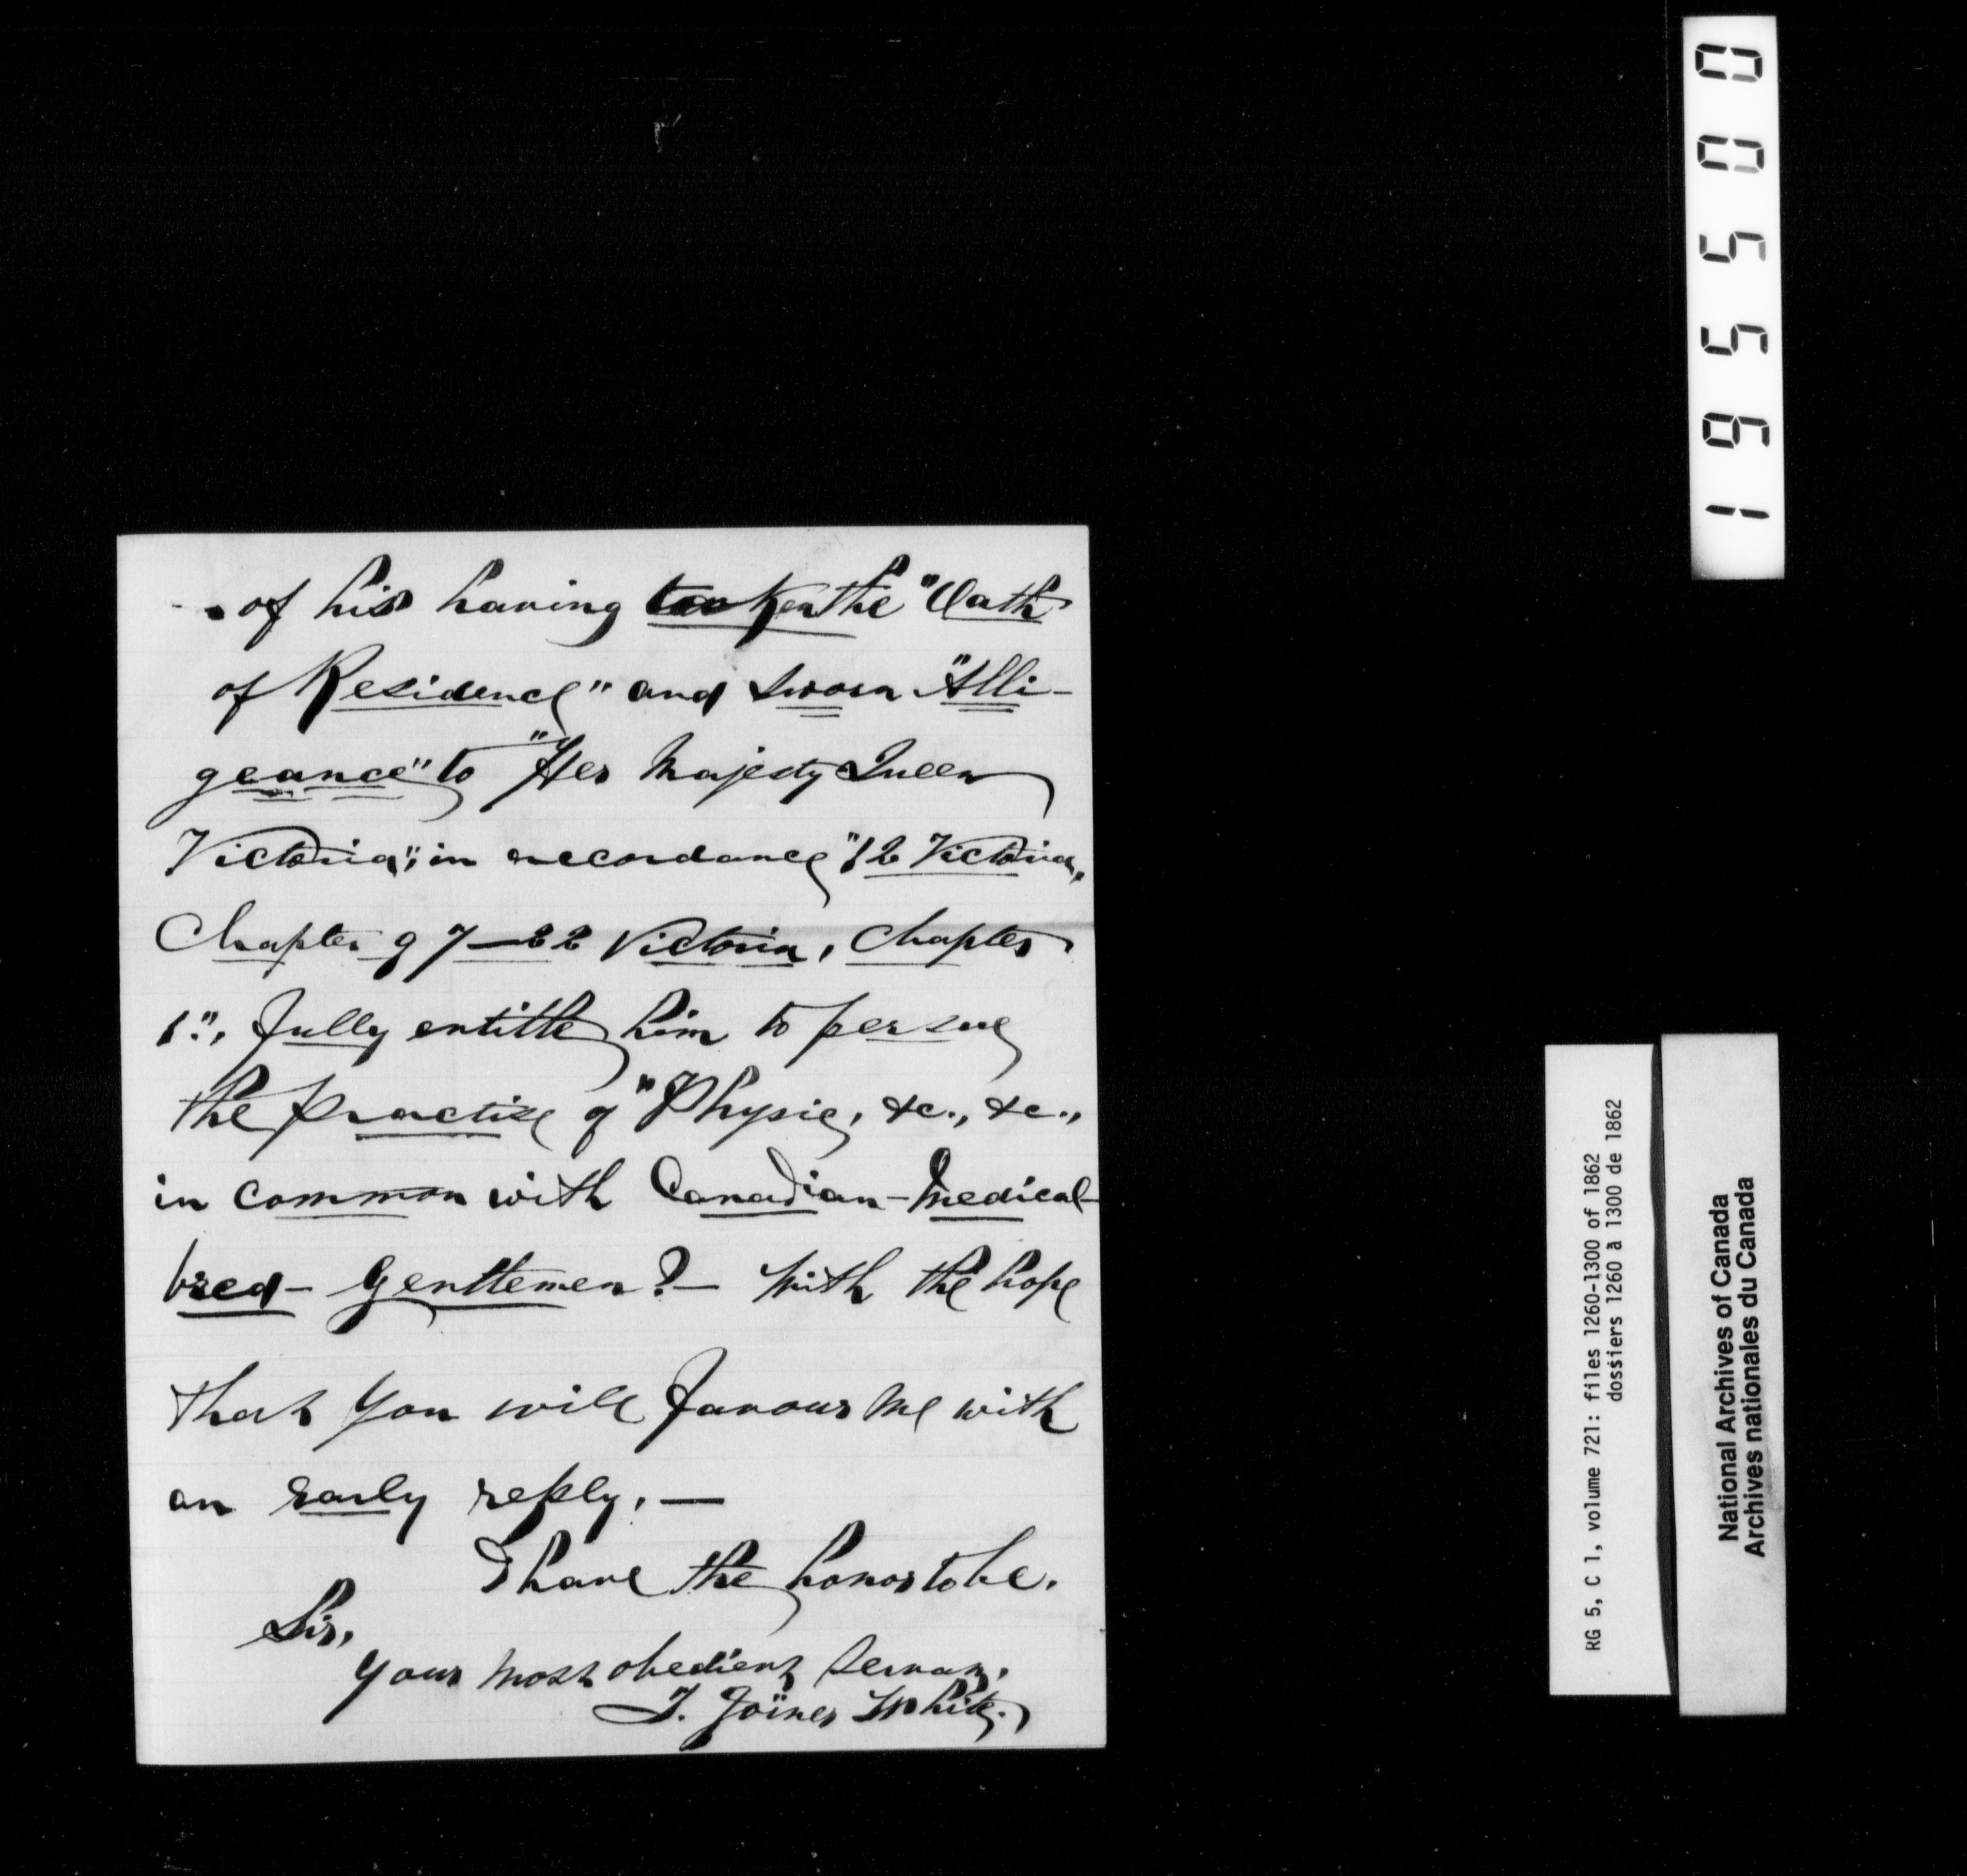 of his having taken the "Oath
of Residence" and sworn "Alli-
geance" to "Her Majesty Queen
Victoria", in accordance "12 Victoria,
Chapter 97—22 Victoria, Chapter
1.", fully entitle him to persue
the practise of "Physic, &c., &c.,
in common with Canadian-Medical-
bred-Gentlemen?— With the hope
that you will favour me with
an early reply.—
I have the honor to be.
Sir,
Your most obedient Servant.
T. Joiner White.
195500
RG 5, C 1, volume 721: files 1260-1300 of 1862
dossiers 1260 à 1300 de 1862
National Archives of Canada
Archives nationales du Canada